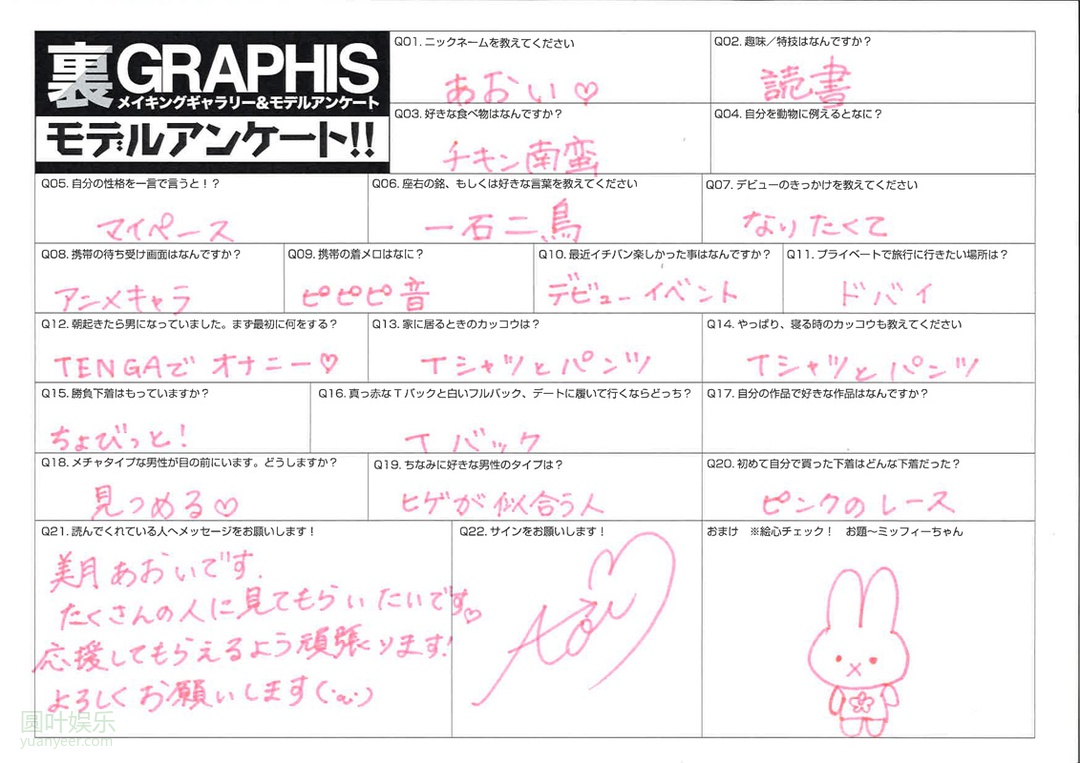 裏GRAPHIS
メイキングギャラリー&モデルアンケート
モデルアンケート!!
Q01. ニックネームを教えてください
あおい♡
Q02. 趣味／特技はなんですか？
読書
Q03. 好きな食べ物はなんですか？
チキン南蛮
Q04. 自分を動物に例えるとなに？
Q05. 自分の性格を一言で言うと！？
マイペース
Q06. 座右の銘、もしくは好きな言葉を教えてください
一石二鳥
Q07. デビューのきっかけを教えてください
なりたくて
Q08. 携帯の待ち受け画面はなんですか？
アニメキャラ
Q09. 携帯の着メロはなに？
ピピピ音
Q10. 最近イチバン楽しかった事はなんですか？
デビューイベント
Q11. プライベートで旅行に行きたい場所は？
ドバイ
Q12. 朝起きたら男になっていました。まず最初に何をする？
TENGAで オナニー♡
Q13. 家に居るときのカッコウは？
Tシャツとパンツ
Q14. やっぱり、寝る時のカッコウも教えてください
Tシャツとパンツ
Q15. 勝負下着はもっていますか？
ちょびっと！
Q16. 真っ赤なTバックと白いフルバック、デートに履いて行くならどっち？
Tバック
Q17. 自分の作品で好きな作品はなんですか？
Q18. メチャタイプな男性が目の前にいます。どうしますか？
見つめる♡
Q19. ちなみに好きな男性のタイプは？
ヒゲが似合う人
Q20. 初めて自分で買った下着はどんな下着だった？
ピンクのレース
Q21. 読んでくれている人へメッセージをお願いします！
美月あおいです.
たくさんの人に見てもらいたいです♡
応援してもらえるよう頑張ります!
よろしくお願いします(･ω･)
Q22. サインをお願いします！
Aoi
おまけ　※絵心チェック！　お題〜ミッフィーちゃん
圆叶娱乐
yuanyeer.com